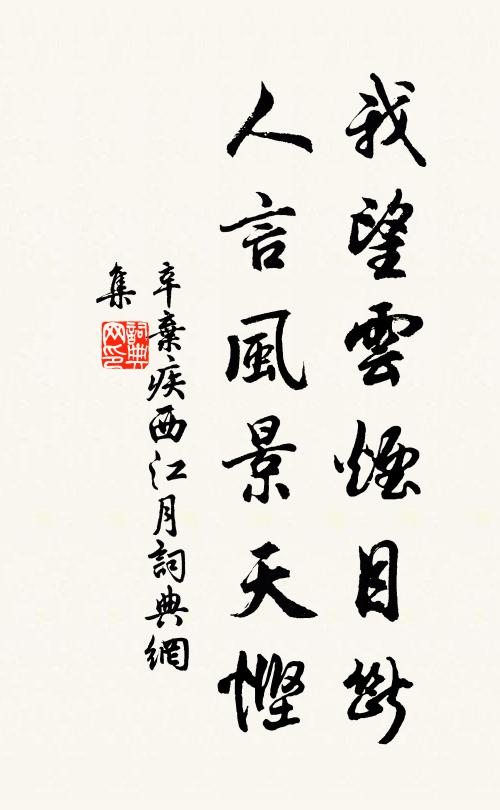 我望雲煙目斷
人言風景天慳
辛棄疾西江月詞典網
集
詞典網印